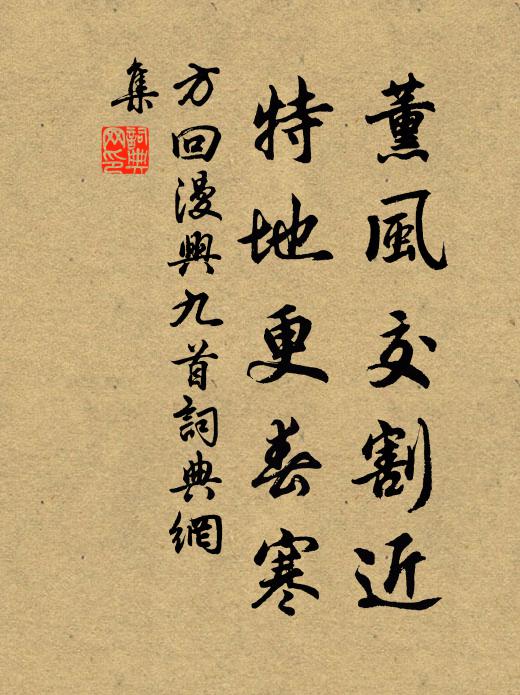 薰風交割近
特地更春寒
方回漫興九首詞典網
集
詞典網印